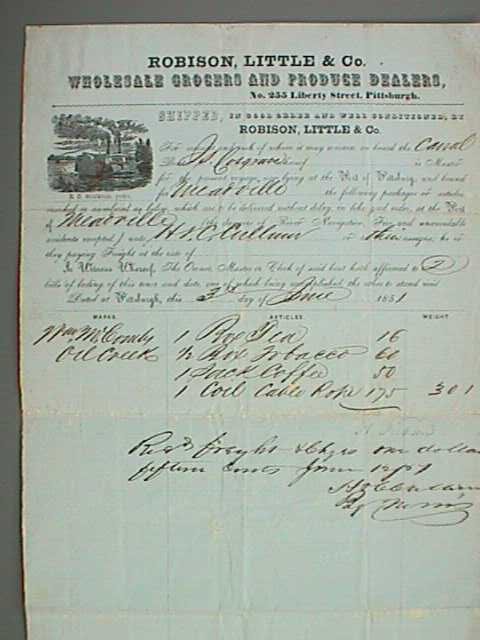 ROBISON, LITTLE & Co.
WHOLESALE GROCERS AND PRODUCE DEALERS,
No. 255 Liberty Street, Pittsburgh.
SHIPPED, IN GOOD ORDER AND WELL CONDITIONED, BY
ROBISON, LITTLE & Co.
For account and risk of whom it may concern on board the Canal
J. Cosgrave is Master
for the present voyage, now lying at the of and bound
for Meadville the following packages or articles,
marked or numbered as below, which are to be delivered without delay, in like good order, at the Port
of Meadville (the dangers of River Navigation, Fire and unavoidable
accidents excepted) unto H. & C. Cullum or their assigns, he or
they paying Freight at the rate of
In Witness Whereof, The Owner, Master or Clerk of said boat hath affirmed to 2
bills of lading of this tenor and date, one of which being accomplished, the others to stand void.
Dated at this 3rd day of June 1851
MARKS. ARTICLES. WEIGHT.
Wm McComb 1 Box Tea 16
Oil Creek ½ Box Tobacco 60
1 Sack Coffee 50
1 Coil Cable Rope 175 301
Recd freight & Chgs one dollar
fifteen cents June